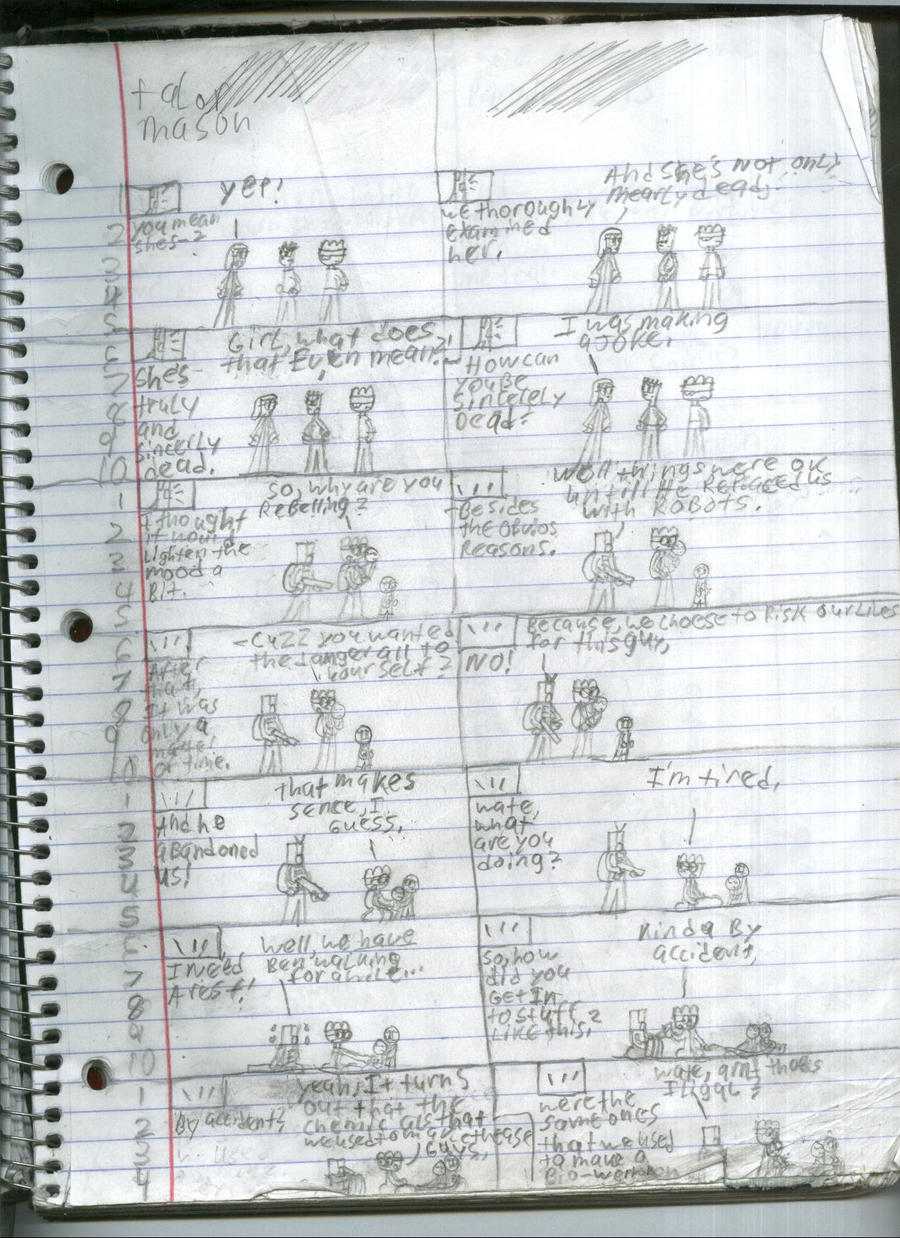 talor
mason
1
2
3
4
5
6
7
8
9
10
1
2
3
4
5
6
7
8
9
10
1
2
3
4
5
6
7
8
9
10
1
2
3
4
YEP!
you mean
shes-?
And She's not only
mearly dead,
we thoroughly
examined
her.
Girl, what does
that Even mean?!
shes-
truly
and
sincerly
dead.
I was making
a joke.
How can
you Be
sincerely
Dead?
So, why are you
Rebelling?
I thought
it would
Lighten the
mood a
Bit.
Well, things were ok
untill He Replaced us
with ROBOTS.
-Besides
the obvios
Reasons.
-Cuzz you wanted
the danger all to
yourself?
After
that,
it was
only a
mater
of time.
Because, we choese to Risk our Lives
for this guy,
NO!
that makes
sence, I
guess.
And he
abandoned
us!
I'm tired.
wate,
what
are you
doing?
well, we have
Ben walking
for awile...
I need
A rest!
kinda By
accident,
so, how
did you
Get In
to stuff
Like this?
yeah, It turns
out that the
chemicals that
we used to make these
guys,
By accident?
wate, arnt thoes
Illigal?
were the
same ones
that we used
to make a
Bio-weapon